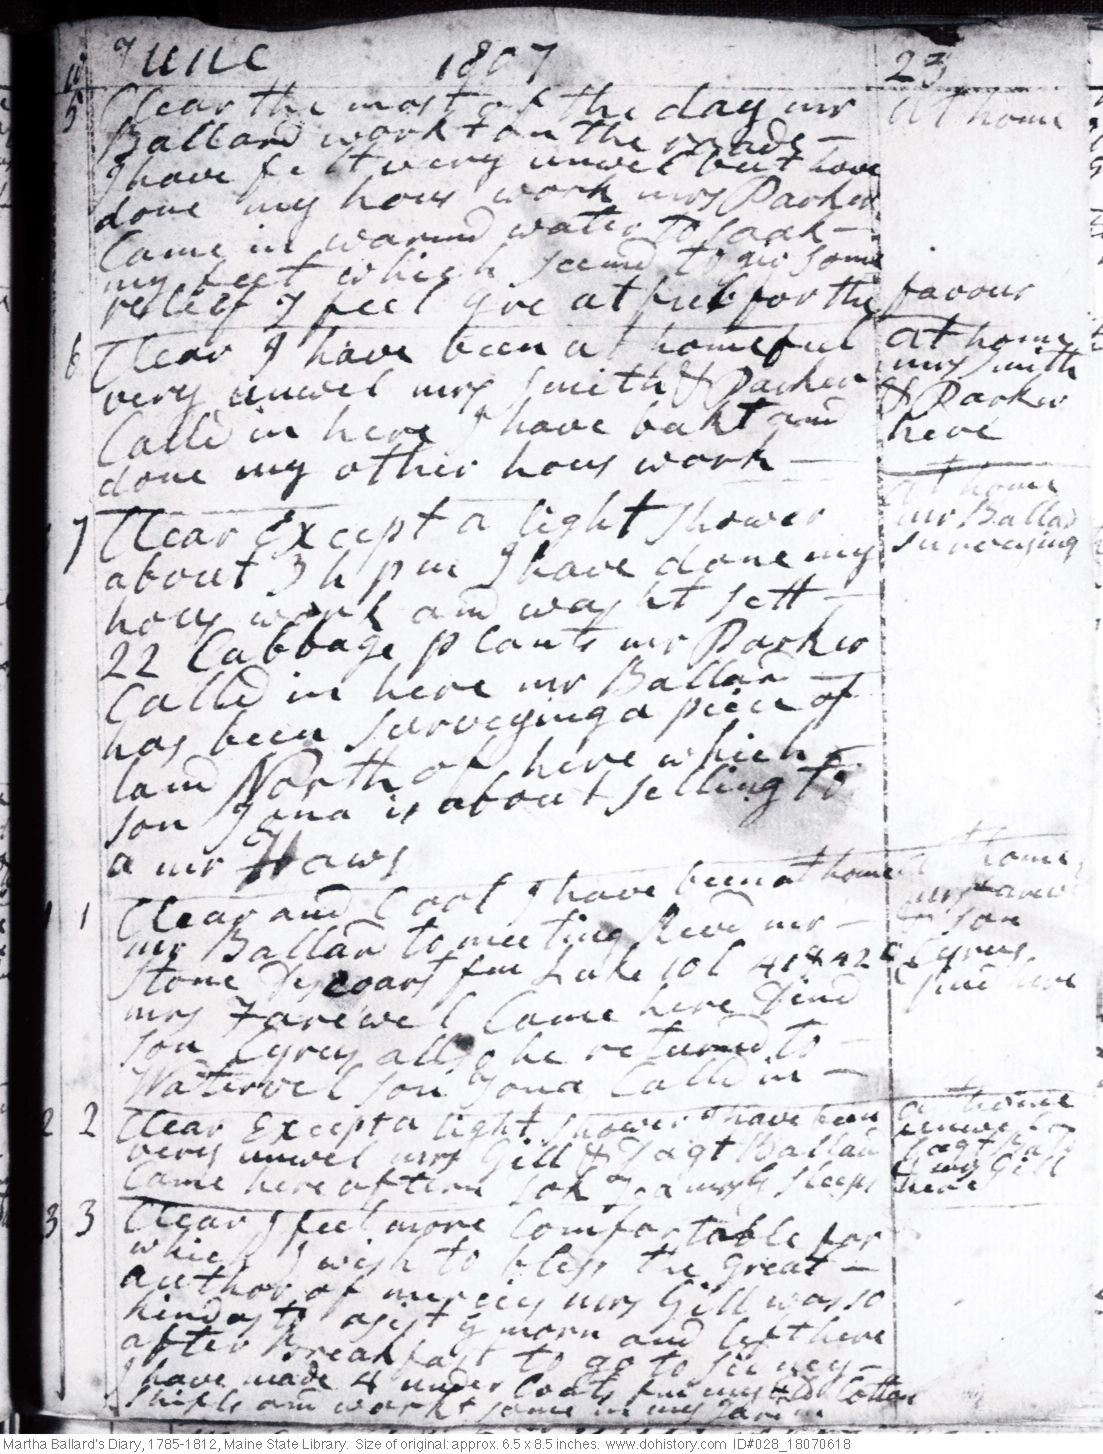 June 1807 23
5 Clear the most of the day mr at home
Ballard workt on the roads -
I have felt very unwel but have
done my hous work mrs Parker
Came in warmd water to soak -
my feet which seemd to giv some
relief I feel
for the favour
6 Clear I have been at home feel at home
very unwel mrs Smith & Parker mrs Smith
Calld in here I have bakt and & Parker
done my other hous work - here
7 Clear Except a light shower at home
about 3 h pm I have done my mr Ballard
hous work and washt sett - surveying
22 Cabbage plants mr Parker
Calld in here mr Ballard -
has been surveying a piece of
land North of here which
son Jona is about selling to
a mr Haws
1 Clear and Cool I have been at home at home
mr Ballard to meeting Recd mr -
Stone
son
mrs Farewel Came here Dind Cyrus
son Cyrus allso he returnd to - here
Watervel son Jona Calld in -
2 2 Clear Except a light shower I have been at home
very unwel mrs Gill & Ballard
Came here aftern mrs G sleeps mrs Gill
here
3 3 Clear I feel more Comfortable for
which I wish to bless the Great -
author of mercies mrs Gill was so
kind as to asist y morn and left here
after Breakfast to go to Sidney -
I have made 4 under Coats Cotton
shifts and workt some in my gardin
Martha Ballard's Diary, 1785-1812, Maine State Library. Size of original: approx. 6.5 x 8.5 inches. www.dohistory.com ID#028_18070618